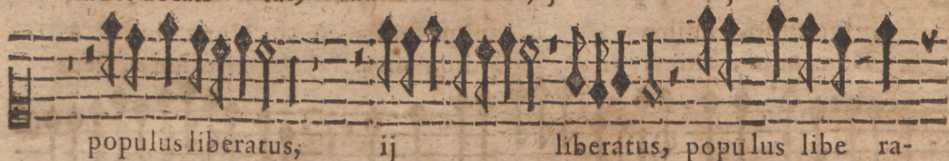 populus liberatus, ij liberatus, populus libe ra-